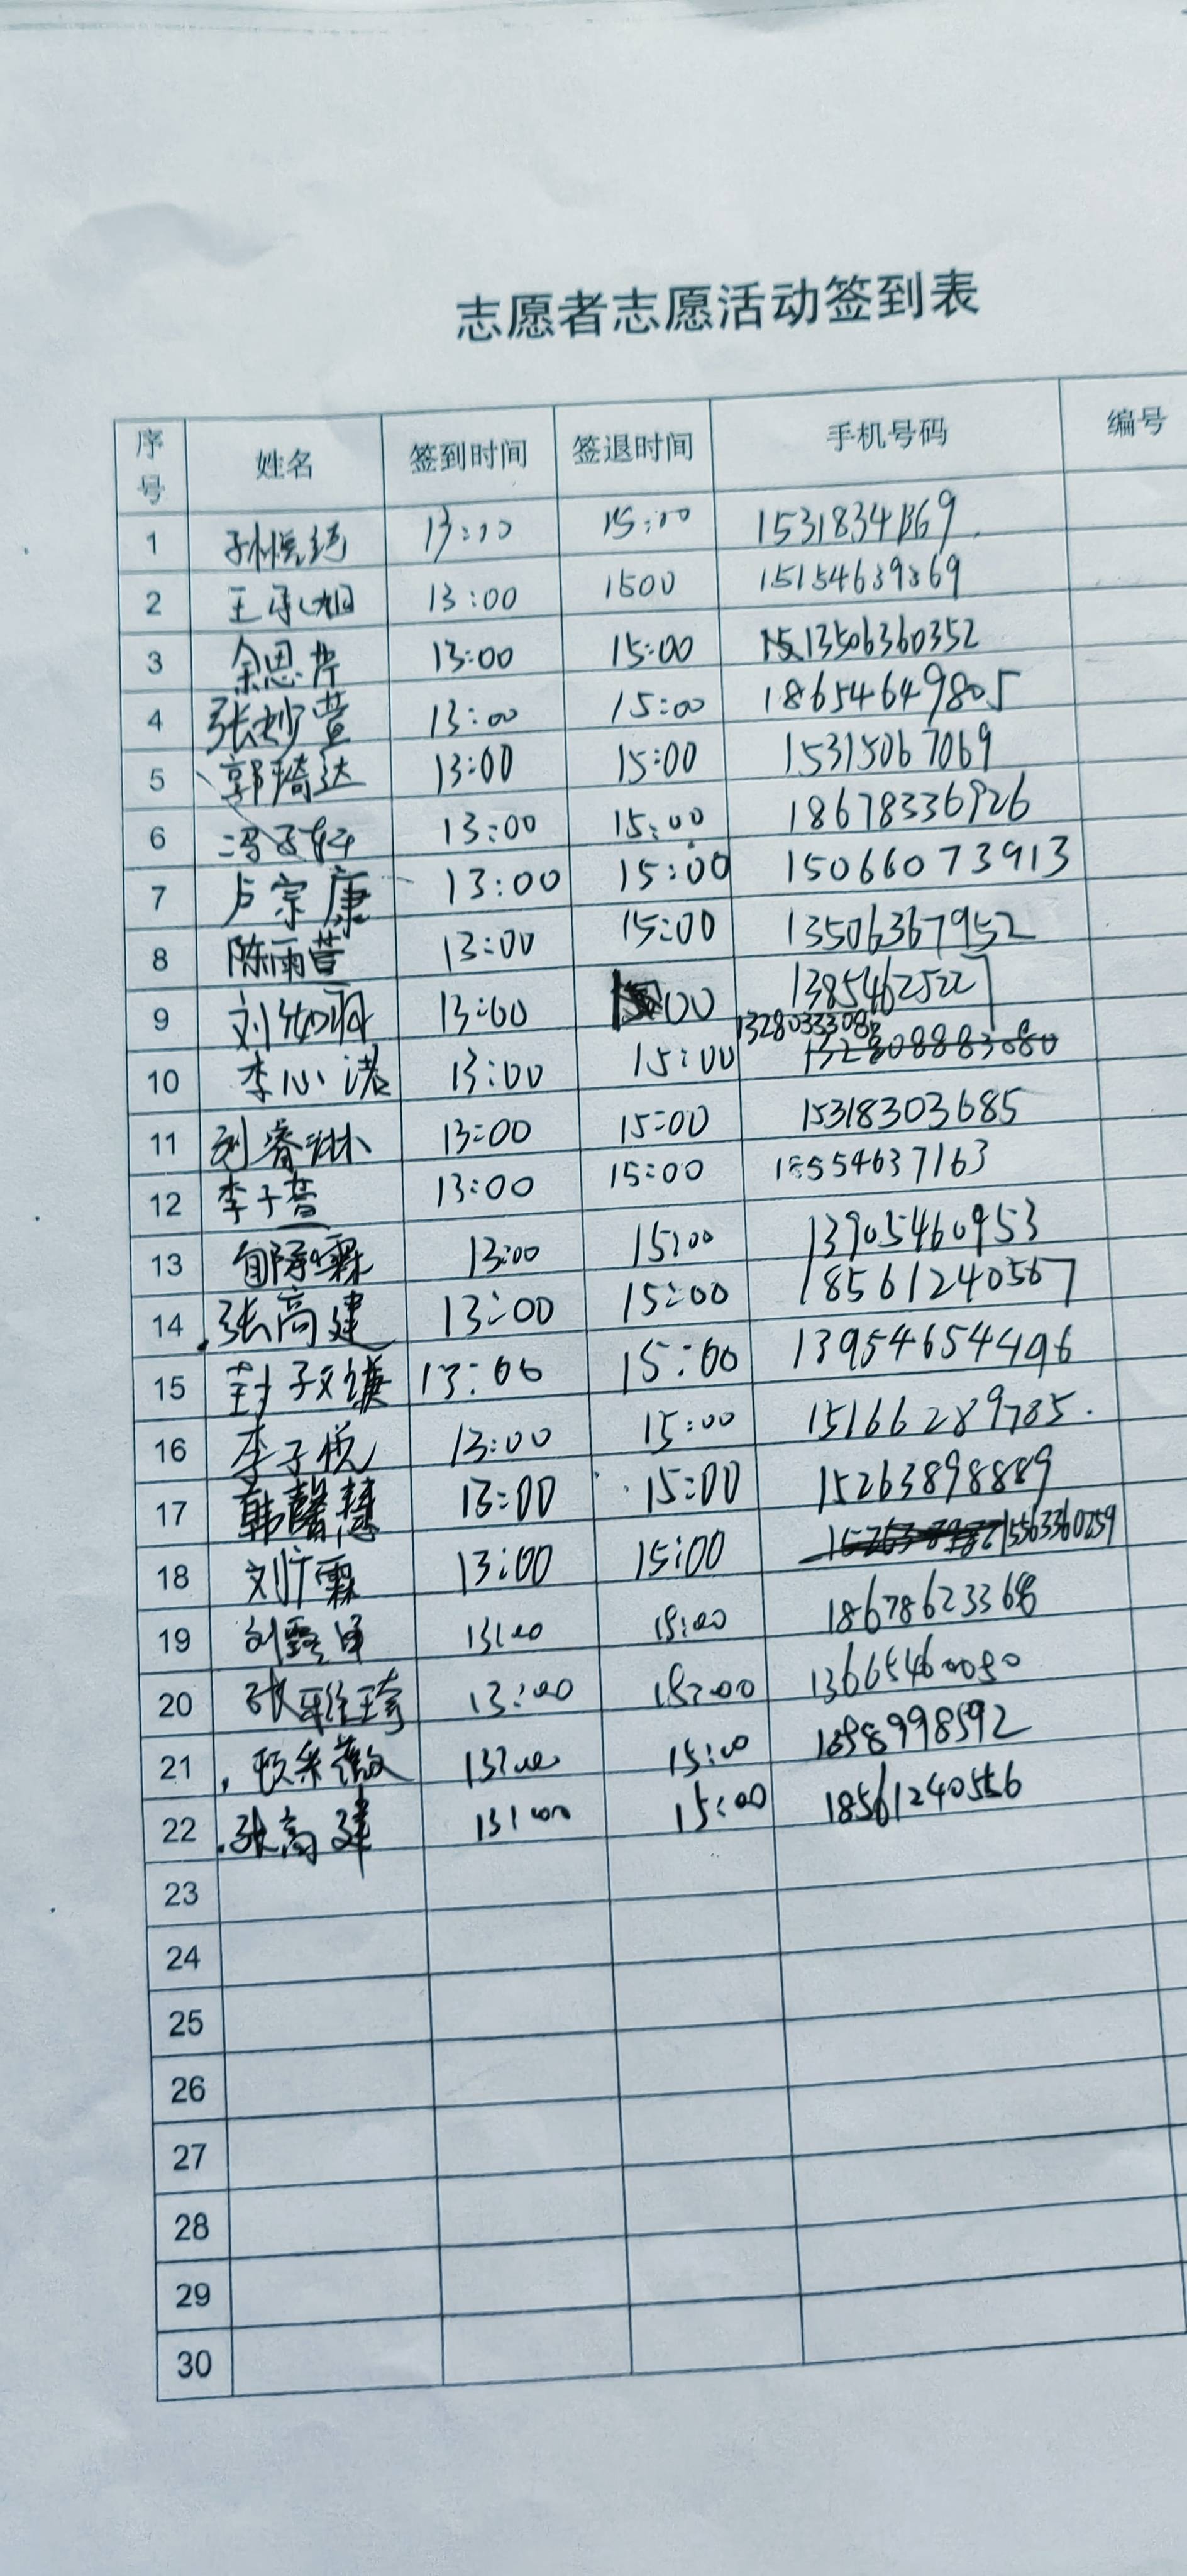 志愿者志愿活动签到表
序号 姓名 签到时间 签退时间 手机号码 编号
1 13:00 15:00
2 13:00 1500 15154639869
3 余思芹 13:00 15:00 13506360352
4 张妙萱 13:00 15:00 18654649805
5 郭琦达 13:00 15:00 15315067069
6 13:00 15:00 18678336926
7 卢宗康 13:00 15:00 15066073913
8 陈雨萱 13:00 15:00 13506367952
9 13:00 13854625227
10 李心诺 13:00 15:00
11 刘睿琳 13:00 15:00 15318303685
12 李子萱 13:00 15:00 18554637163
13 13:00 15:00 13905460953
14 张高建 13:00 15:00 18561240567
15 13:00 15:00 13954654496
16 李子悦 13:00 15:00 15166289785
17 韩馨慧 13:00 15:00 15263898889
18 13:00 15:00 15563360259
19 13:00 15:00
20 13:00 15:00 13665460080
21 13:00 15:00
22 张高建 13:00 15:00
23
24
25
26
27
28
29
30